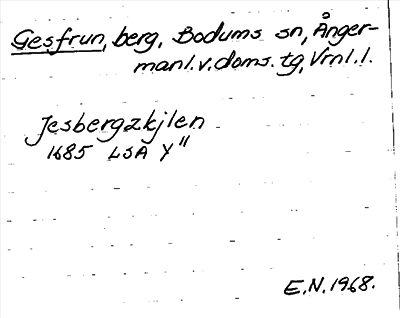 Gesfrun, berg, Bodums sn, Ånger-
manl.v.doms.tg, Vrnl.l.
Jesbergzkjlen
1685 LSA Y"
E.N. 1968.